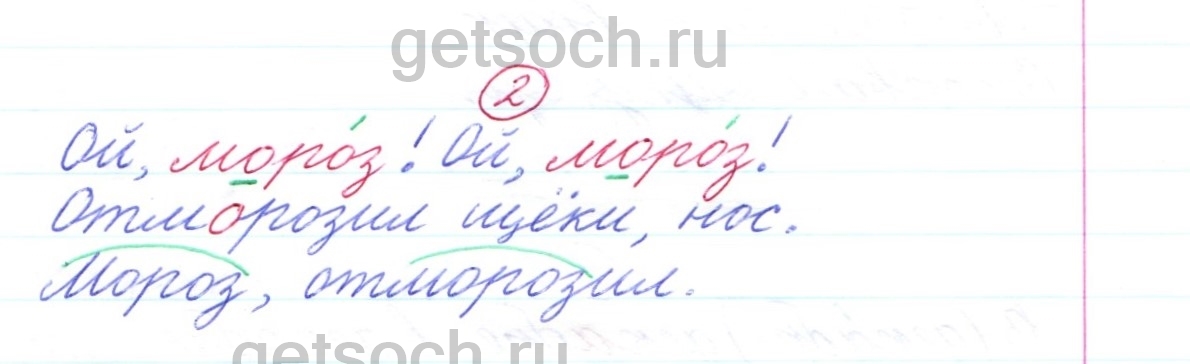 getsoch.ru
2
Ой, моро́з! Ой, моро́з!
Отморозил щёки, нос.
Мороз, отморозил.
getsoch.ru